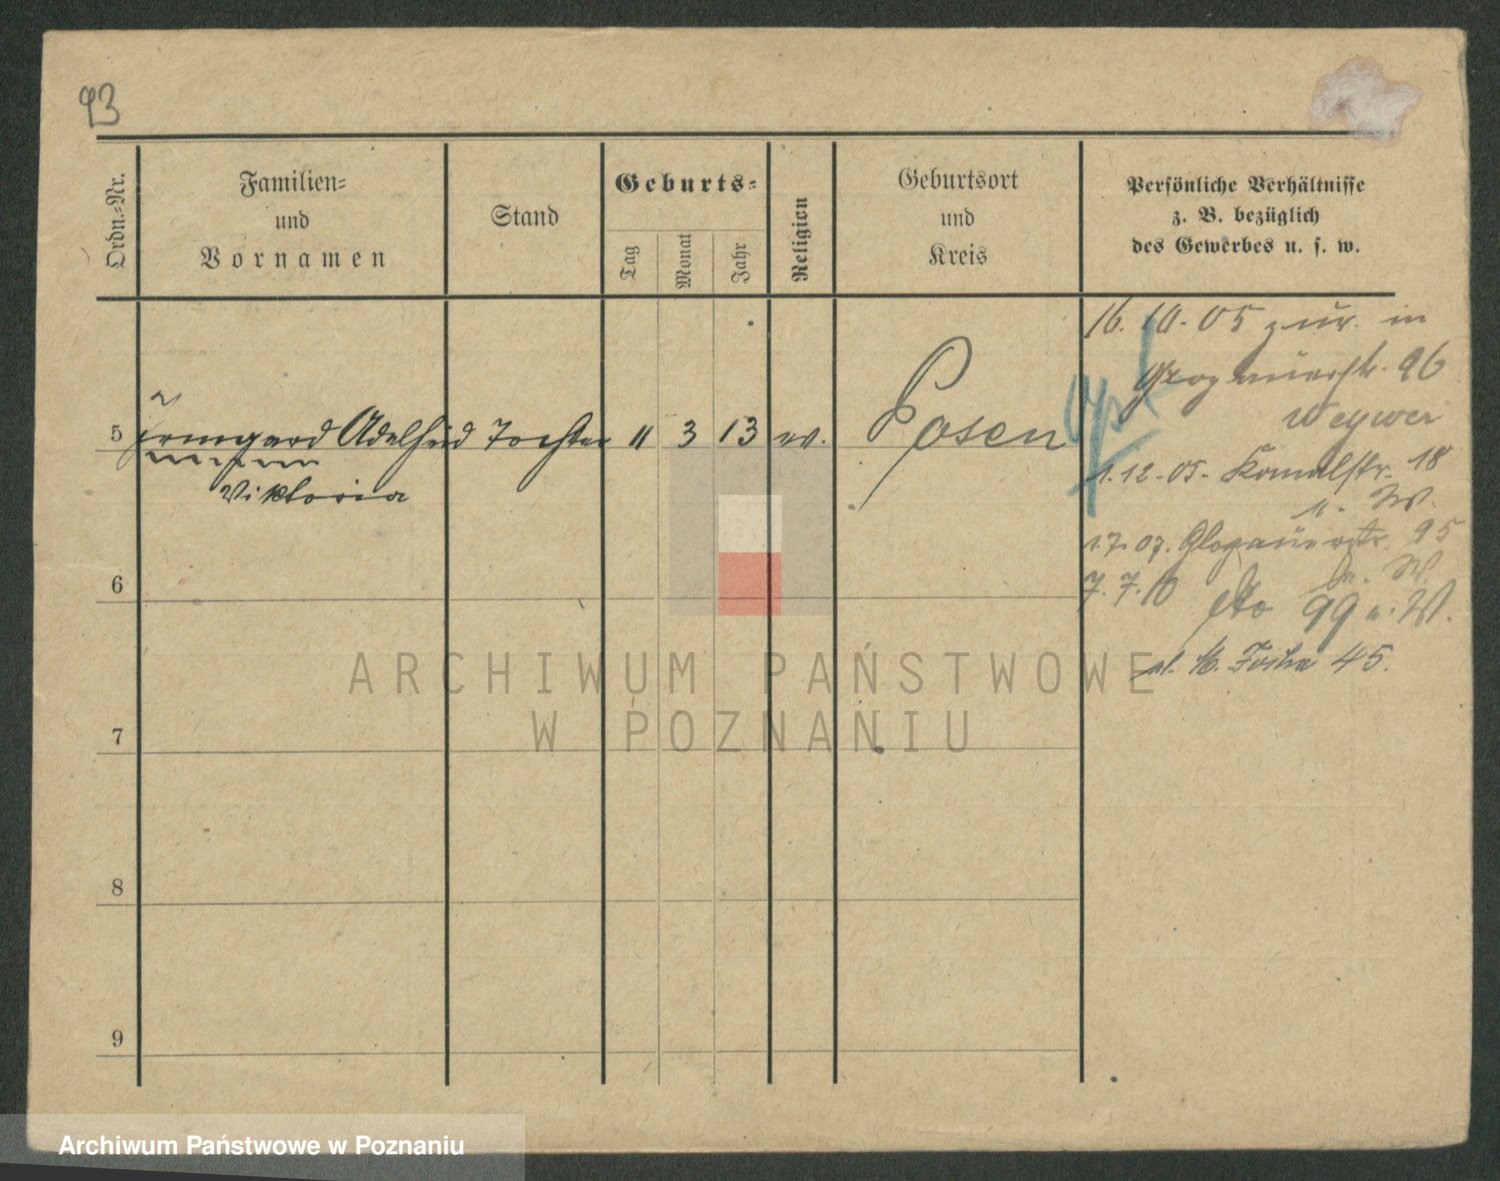 93
Ordn.-Nr.
Familien-
und
Vornamen
Stand
Geburts-
Tag
Monat
Jahr
Religion
Geburtsort
und
Kreis
Persönliche Verhältnisse
z. B. bezüglich
des Gewerbes u. s. w.
5 Irmgard Adelheid Tochter 11 3 13 ev. Posen
Viktoria
6
7
8
9
16. 10. 05 zur. in
Glogauerstr. 96
1. 12. 05. Kanalstr. 18
u. W.
1. 7. 07. Glogauerstr. 95
b. W.
7. 7. 10 dto 99 u. W.
45.
ARCHIWUM PAŃSTWOWE
W POZNANIU
Archiwum Państwowe w Poznaniu